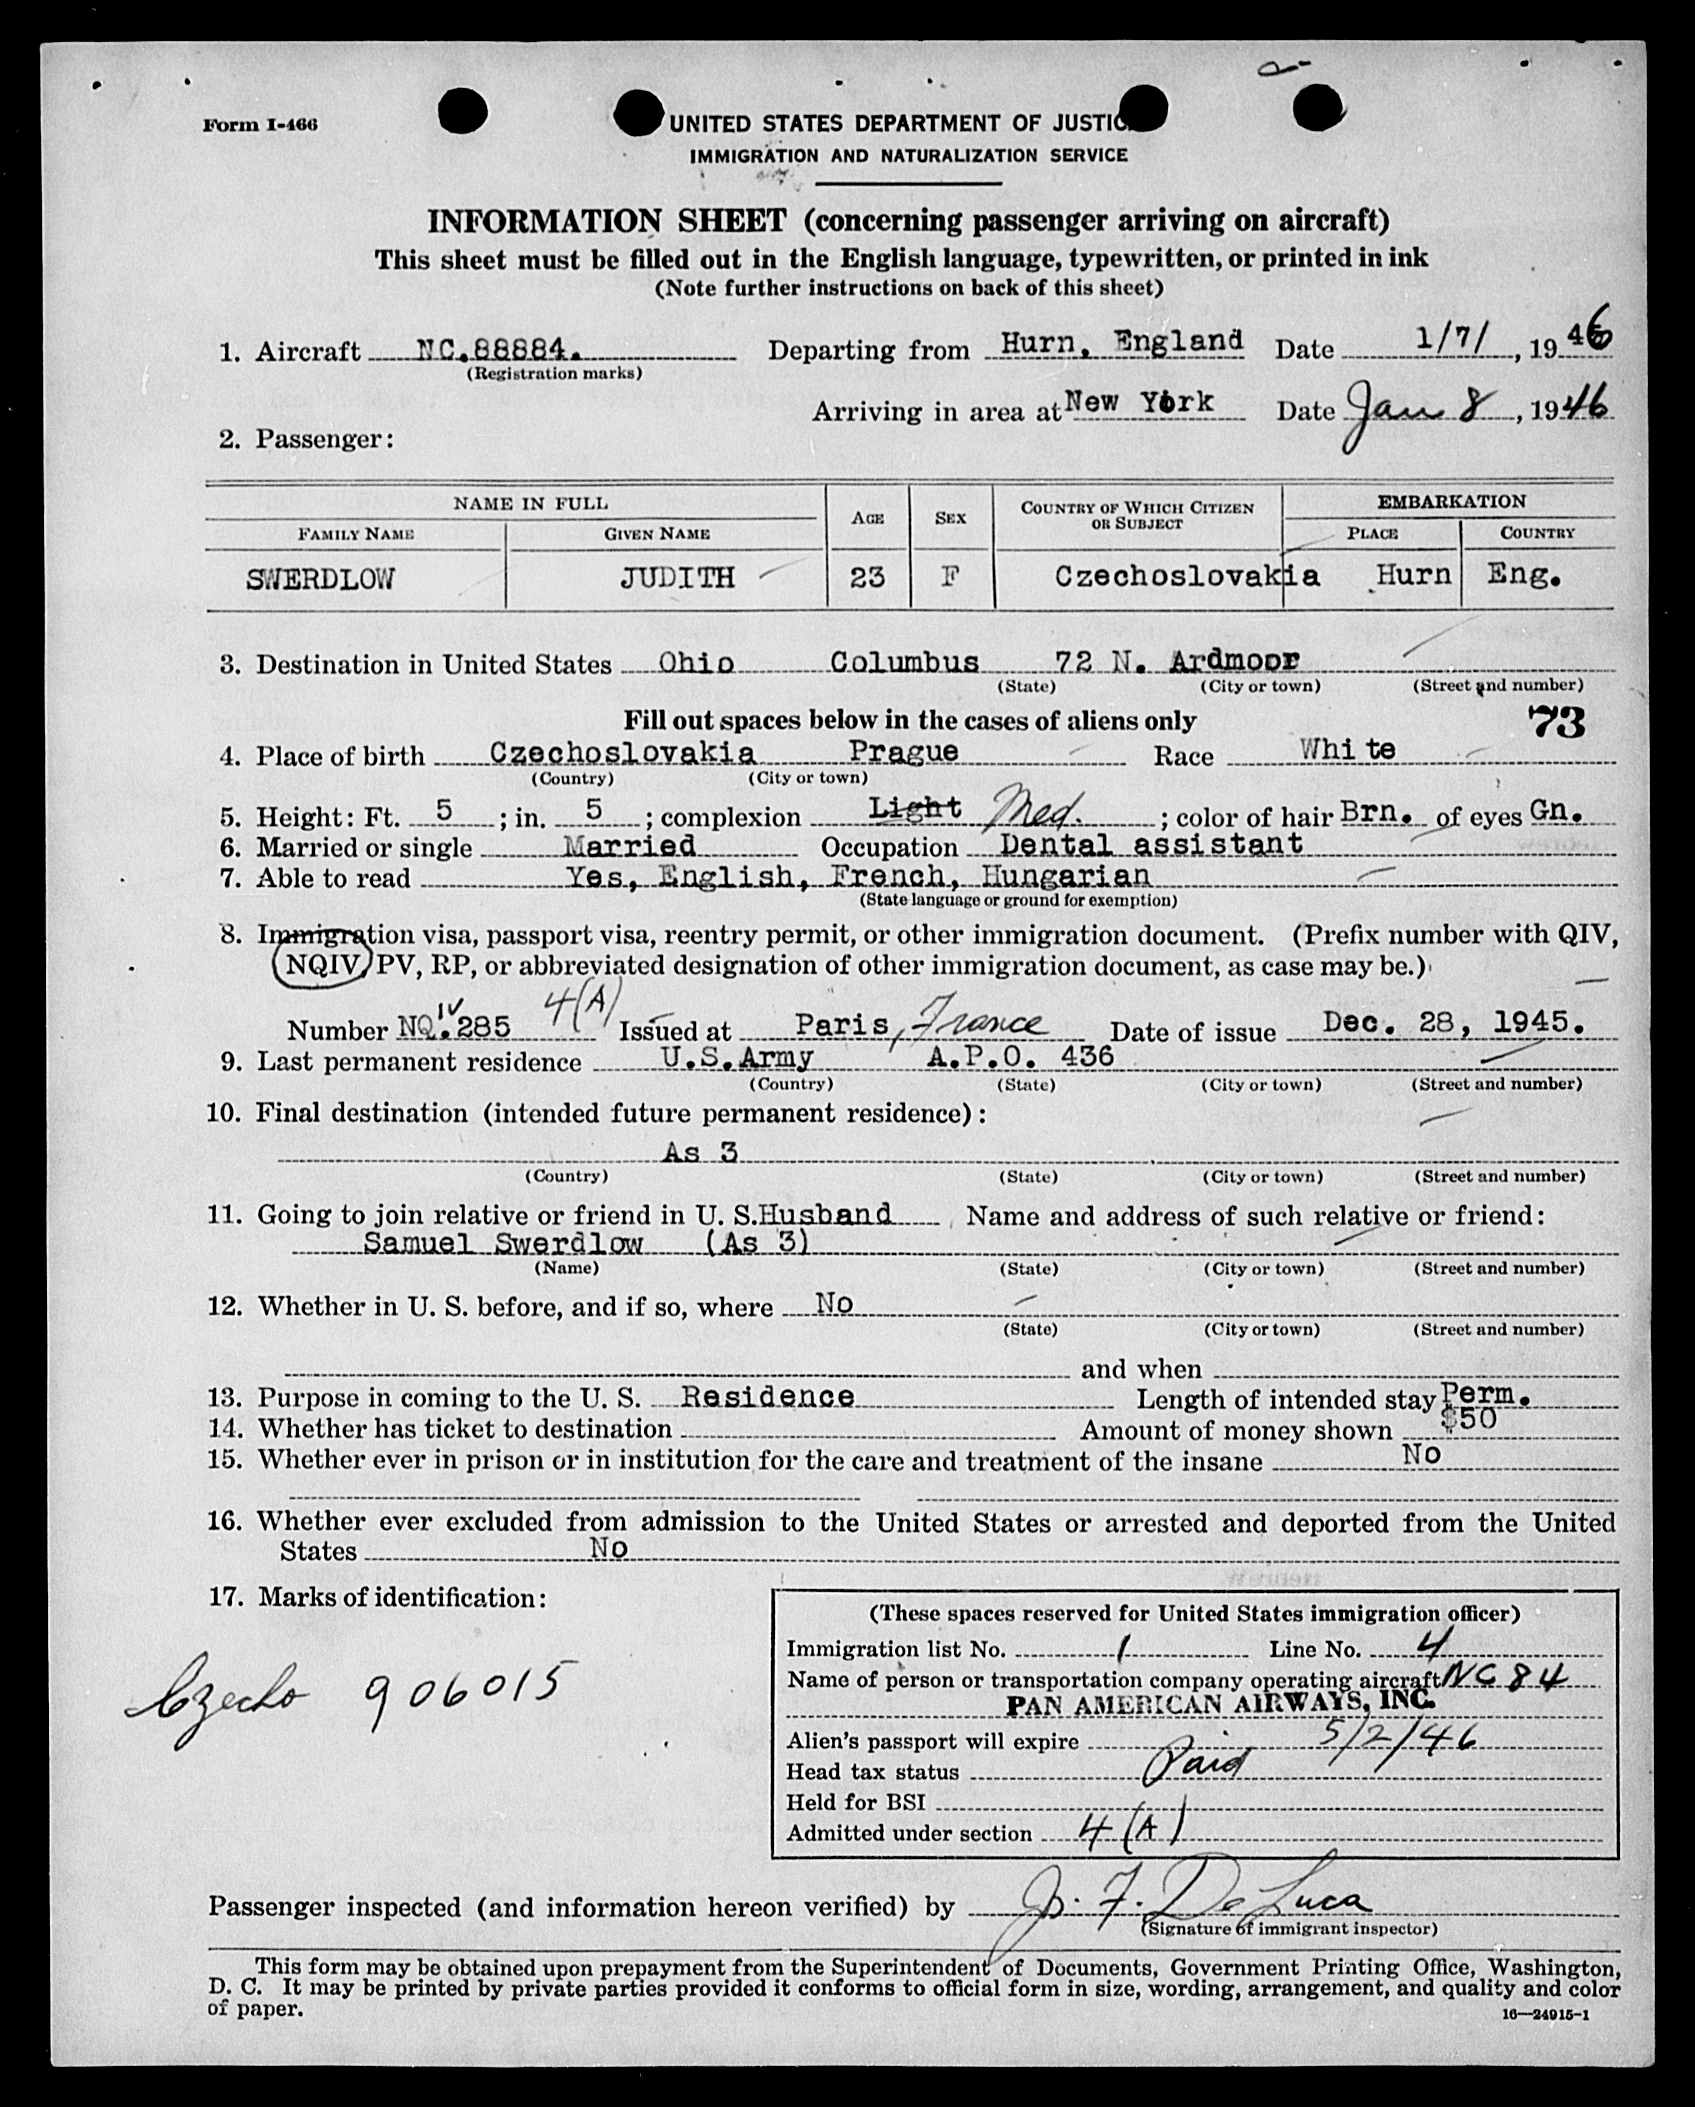 Form I-466
UNITED STATES DEPARTMENT OF JUSTIC
IMMIGRATION AND NATURALIZATION SERVICE
INFORMATION SHEET (concerning passenger arriving on aircraft)
This sheet must be filled out in the English language, typewritten, or printed in ink
(Note further instructions on back of this sheet)
1. Aircraft NC.88884. Departing from Hurn, England Date 1/7/, 1946
(Registration marks)
Arriving in area at New York Date Jan 8, 1946
2. Passenger:
NAME IN FULL AGE SEX COUNTRY OF WHICH CITIZEN OR SUBJECT EMBARKATION
FAMILY NAME GIVEN NAME PLACE COUNTRY
SWERDLOW JUDITH 23 F Czechoslovakia Hurn Eng.
3. Destination in United States Ohio Columbus 72 N. Ardmoor
(State) (City or town) (Street and number)
Fill out spaces below in the cases of aliens only 73
4. Place of birth Czechoslovakia Prague Race White
(Country) (City or town)
5. Height: Ft. 5; in. 5; complexion Light Med.; color of hair Brn. of eyes Gn.
6. Married or single Married Occupation Dental assistant
7. Able to read Yes, English, French, Hungarian
(State language or ground for exemption)
8. Immigration visa, passport visa, reentry permit, or other immigration document. (Prefix number with QIV,
NQIV, PV, RP, or abbreviated designation of other immigration document, as case may be.)
Number NQ.IV 285 4(A) Issued at Paris, France Date of issue Dec. 28, 1945.
9. Last permanent residence U.S.Army A.P.O. 436
(Country) (State) (City or town) (Street and number)
10. Final destination (intended future permanent residence):
As 3
(Country) (State) (City or town) (Street and number)
11. Going to join relative or friend in U. S. Husband Name and address of such relative or friend:
Samuel Swerdlow (As 3)
(Name) (State) (City or town) (Street and number)
12. Whether in U. S. before, and if so, where No
(State) (City or town) (Street and number)
and when
13. Purpose in coming to the U. S. Residence Length of intended stay Perm.
14. Whether has ticket to destination Amount of money shown $50
15. Whether ever in prison or in institution for the care and treatment of the insane No
16. Whether ever excluded from admission to the United States or arrested and deported from the United
States No
17. Marks of identification:
Czecho 906015
(These spaces reserved for United States immigration officer)
Immigration list No. 1 Line No. 4
Name of person or transportation company operating aircraft NC84
PAN AMERICAN AIRWAYS, INC.
Alien's passport will expire 5/2/46
Head tax status Paid
Held for BSI
Admitted under section 4(A)
Passenger inspected (and information hereon verified) by J. F. De Luca
(Signature of immigrant inspector)
This form may be obtained upon prepayment from the Superintendent of Documents, Government Printing Office, Washington,
D. C. It may be printed by private parties provided it conforms to official form in size, wording, arrangement, and quality and color
of paper.
16—24915-1